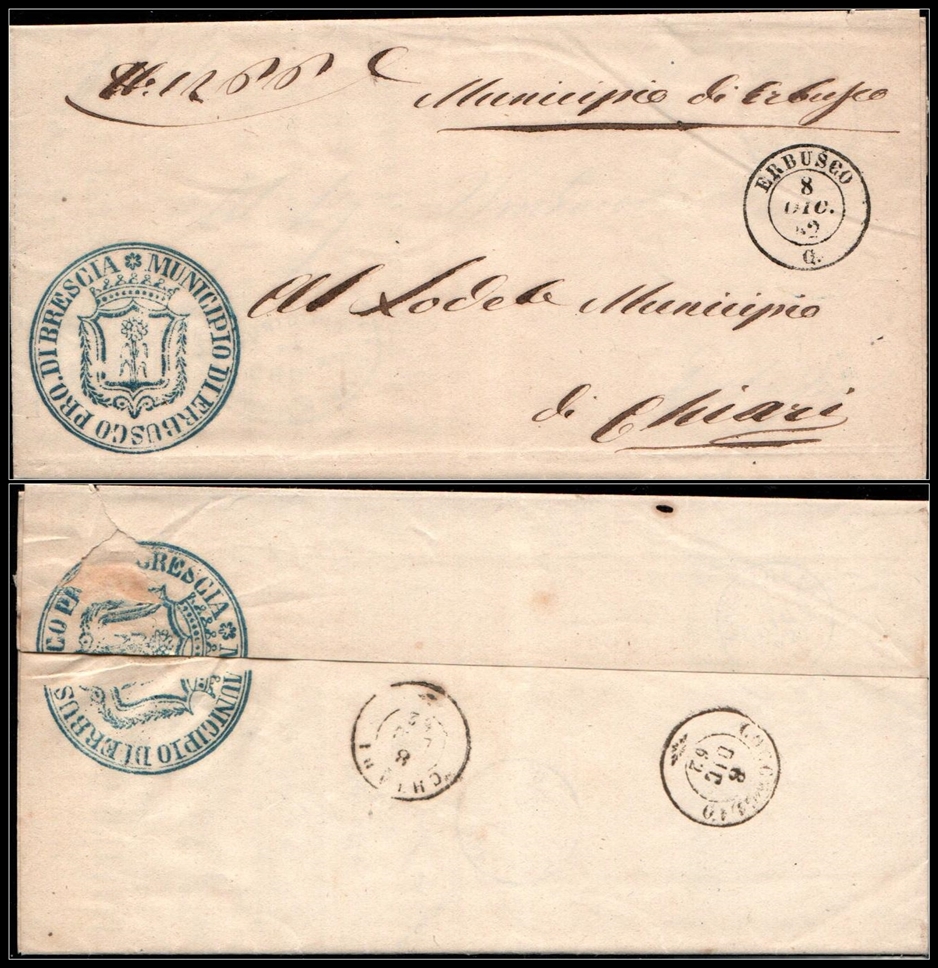 N. 1266
Municipio di Erbusco
ERBUSCO
8
DIC.
62
G.
MUNICIPIO DI ERBUSCO PRO. DI BRESCIA
Al Lodele Municipio
di Chiari
BRESCIA MUNICIPIO DI ERBUS CO
CHIARI
8
COCCAGLIO
8
DIC
62